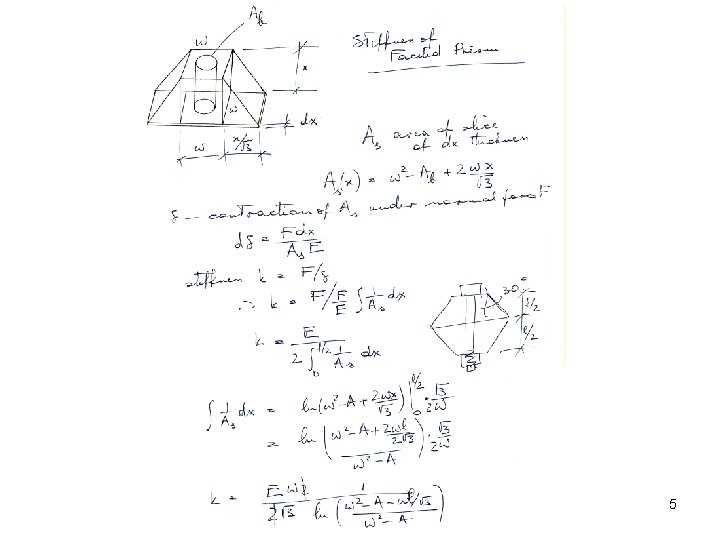 A_b
w
Stiffness of
Faceted Prism
x
w
dx
w x/√3
A_s area of slice
of dx thickness
A_s(x) = w² - A_b + 2wx/√3
δ -- contraction of A_s under normal force F
dδ = Fdx / A_s E
stiffness k = F/δ
∴ k = F / F/E ∫ 1/A_s dx
30°
l/2
l/2
k = E / 2∫₀^(l/2) 1/A_s dx
∫ 1/A_s dx = ln(w² - A + 2wx/√3) |₀^(l/2) · √3/2w
= ln( w² - A + 2wl/2√3 / w² - A ) · √3/2w
k = 1 / ln( w² - A - wl/√3 / w² - A )
5